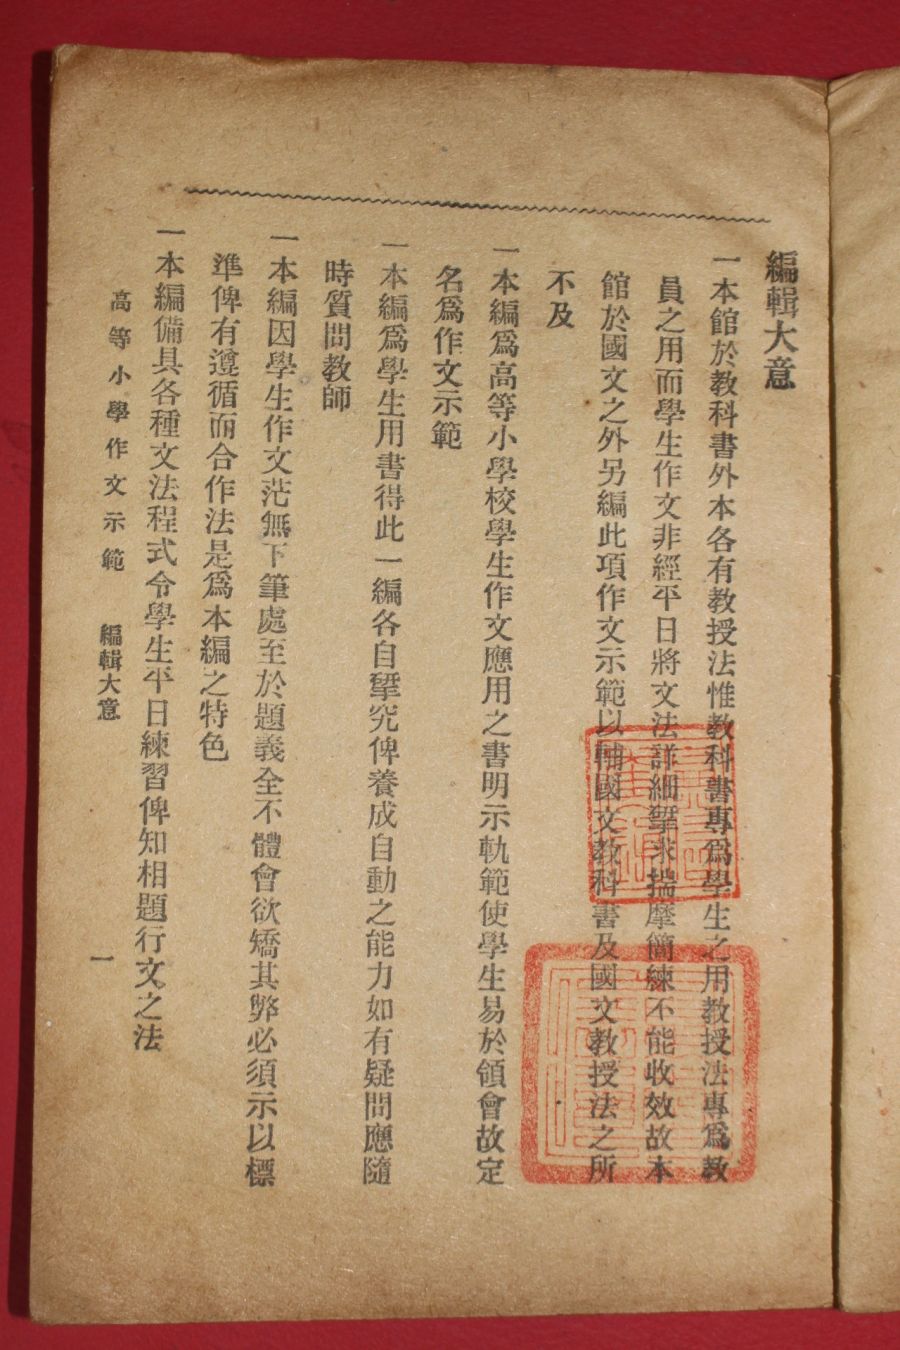 編輯大意
一本館於教科書外本各有教授法惟教科書專爲學生之用教授法專爲教
員之用而學生作文非經平日將文法詳細揅求揣摩簡練不能收效故本
館於國文之外另編此項作文示範以輔國文教科書及國文教授法之所
不及
一本編爲高等小學校學生作文應用之書明示軌範使學生易於領會故定
名爲作文示範
一本編爲學生用書得此一編各自揅究俾養成自動之能力如有疑問應隨
時質問教師
一本編因學生作文茫無下筆處至於題義全不體會欲矯其弊必須示以標
準俾有遵循而合作法是爲本編之特色
一本編備具各種文法程式令學生平日練習俾知相題行文之法
高等小學作文示範 編輯大意 一